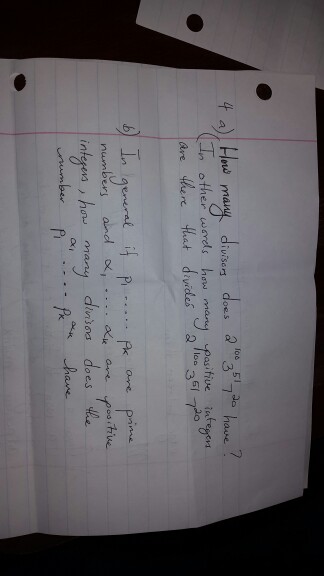 4 a) How many divisors does 2¹⁰⁰3⁵¹7²⁰ have?
(In other words how many positive integers
are there that divides 2¹⁰⁰3⁵¹7²⁰
b) In general if p₁ ..... pₖ are prime
numbers and α₁, .... αₖ are positive
integers, how many divisors does the
number p₁^α₁ ..... pₖ^αₖ have